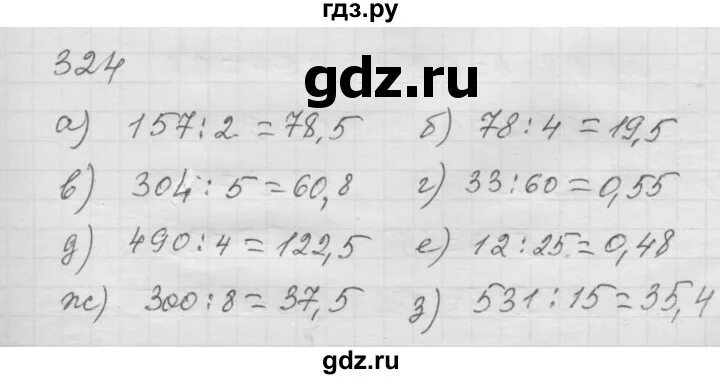 гдз.ру
324
gdz.ru
а) 157:2 = 78,5 б) 78:4 = 19,5
в) 304:5 = 60,8 г) 33:60 = 0,55
д) 490:4 = 122,5 е) 12:25 = 0,48
ж) 300:8 = 37,5 з) 531:15 = 35,4
gdz.ru